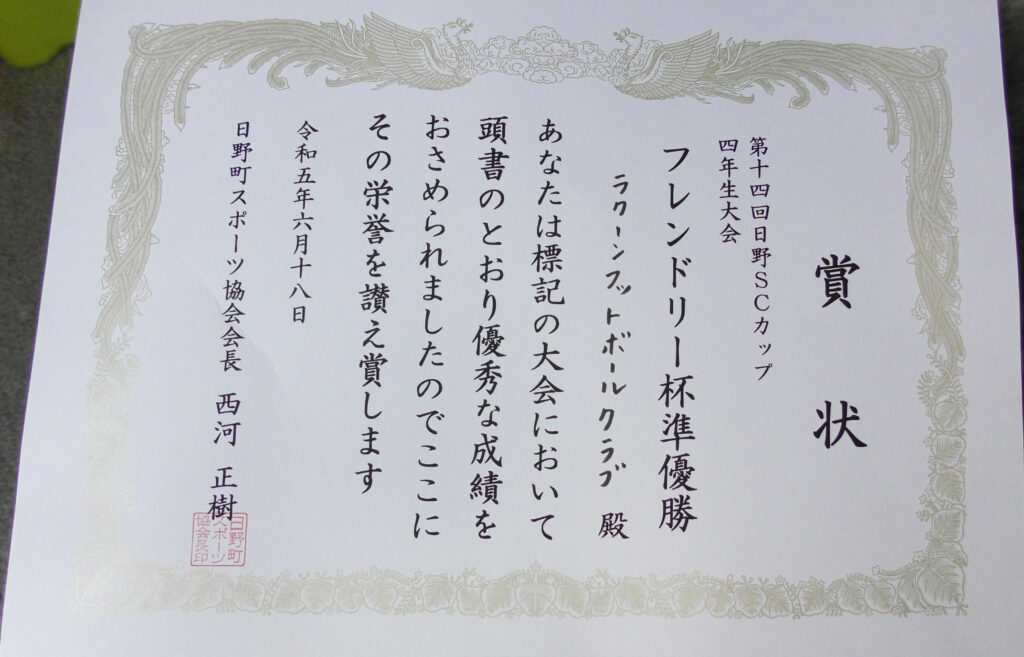 賞状
第十四回日野SCカップ
四年生大会
フレンドリー杯準優勝
ラクーンフットボールクラブ 殿
あなたは標記の大会において
頭書のとおり優秀な成績を
おさめられましたのでここに
その栄誉を讃え賞します
令和五年六月十八日
日野町スポーツ協会会長 西河 正樹
日野町
スポーツ
協会長印